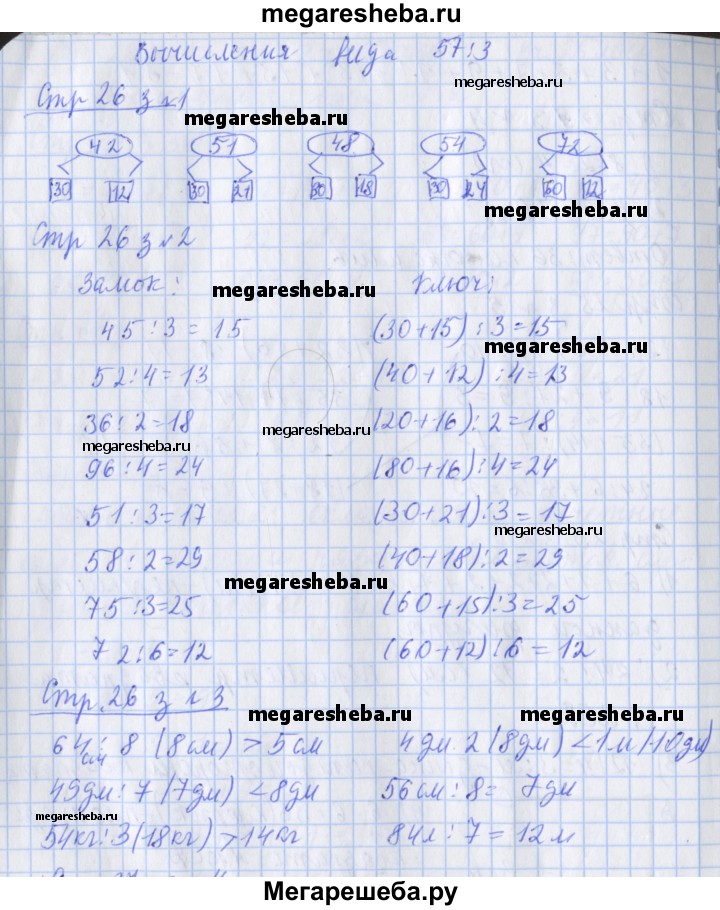 megaresheba.ru
Вычисления вида 57:3
megaresheba.ru
Стр 26 з №1
megaresheba.ru
42 51 48 54 72
30 12 30 21 30 18 30 24 60 12
megaresheba.ru
Стр 26 з №2
Замок: Ключ:
megaresheba.ru
45:3=15 (30+15):3=15
megaresheba.ru
52:4=13 (40+12):4=13
36:2=18 (20+16):2=18
megaresheba.ru megaresheba.ru
96:4=24 (80+16):4=24
51:3=17 (30+21):3=17
megaresheba.ru
58:2=29 (40+18):2=29
megaresheba.ru
75:3=25 (60+15):3=25
72:6=12 (60+12):6=12
Стр. 26 з №3
megaresheba.ru
64см:8 (8см)>5см 4дм·2(8дм)<1м(10дм)
49дм:7(7дм)<8дм 56см:8= 7дм
megaresheba.ru
54кг:3(18кг)>14кг 84м:7=12м
megaresheba.ru
Мегарешеба.ру